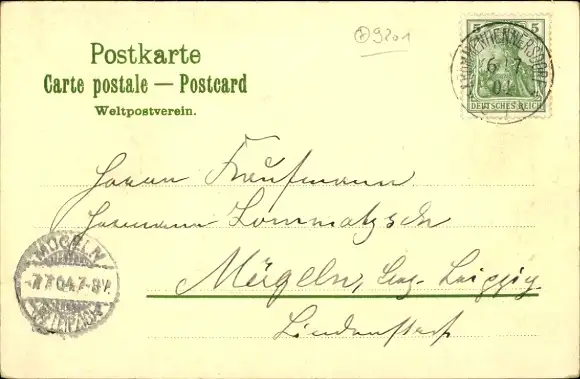 9201
Postkarte
Carte postale — Postcard
Weltpostverein.
5 5
DEUTSCHES REICH
6 7
04
Herrn Kaufmann
Hermann Lommatzsch
Mügeln, Bez. Leipzig.
Lindenstraße
MÜGELN
7.7.04.7-8V.